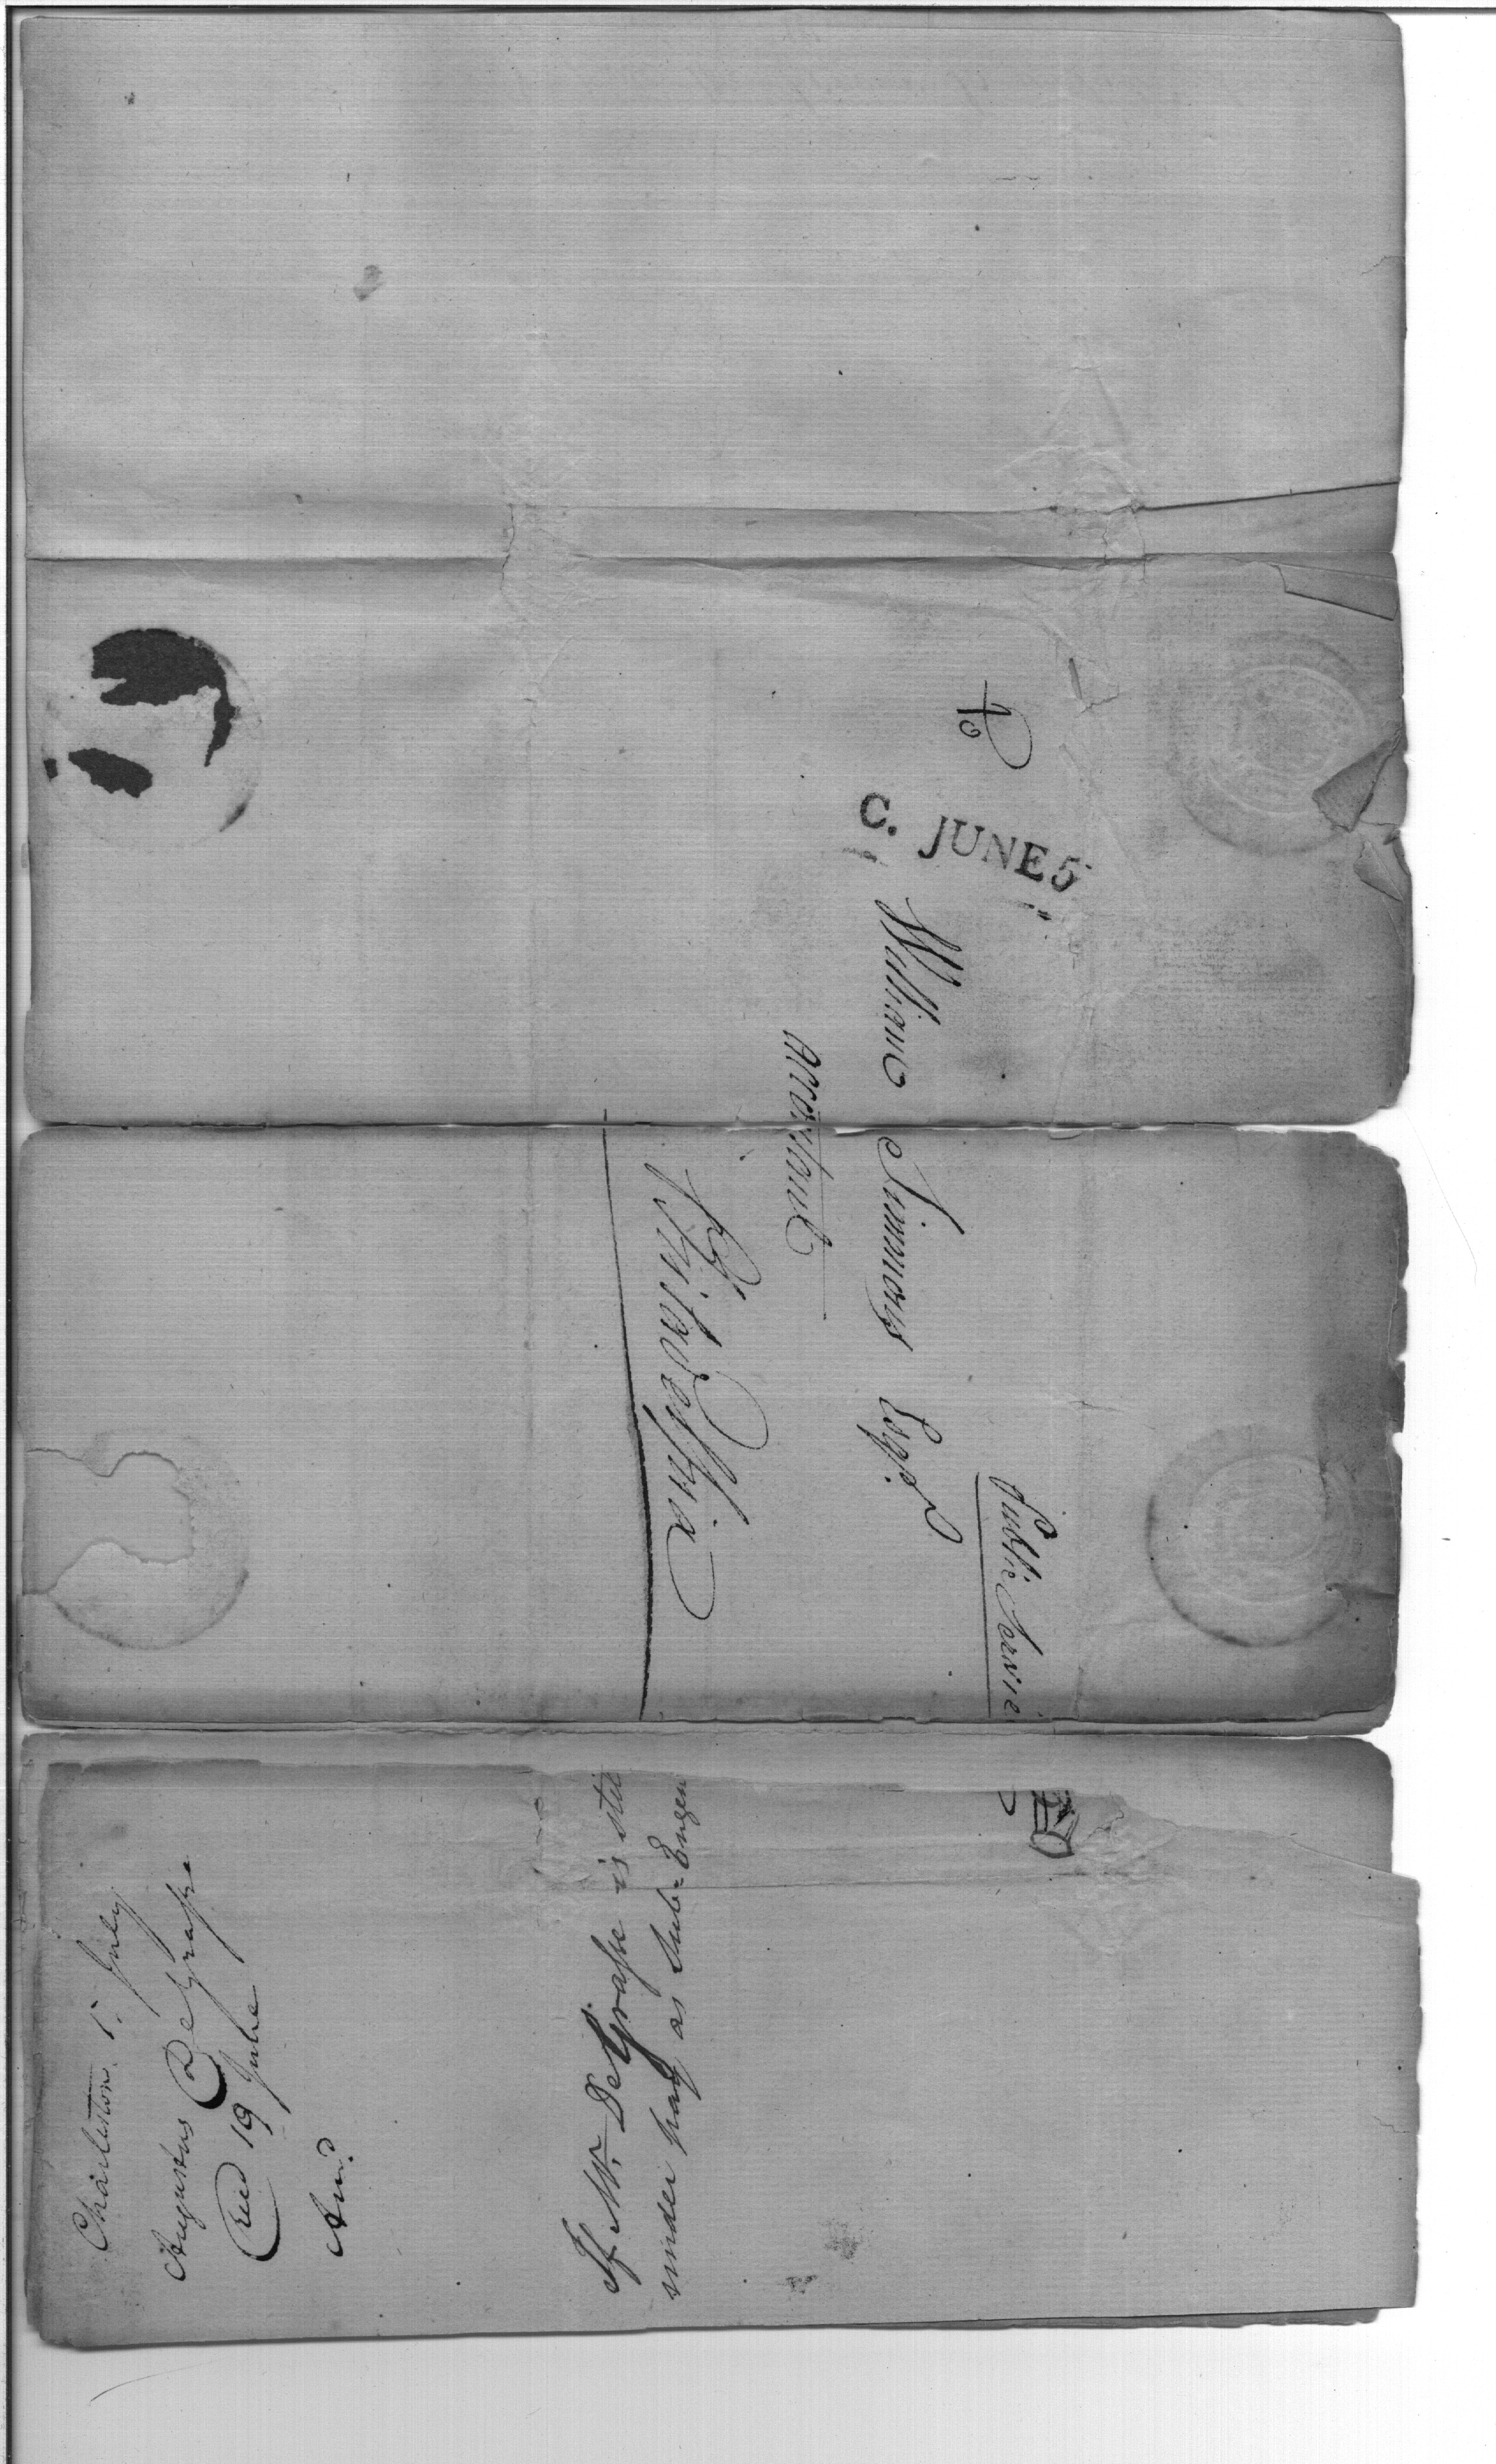 Public Service
To
C. JUNE 5
William Simmons Esqr.
Accountant
Philadelphia
Charleston 5. July
Augustus DeGrasse
Recd 19 June
And.
If Mr. DeGrasse is still
under pay as Sub-Engen